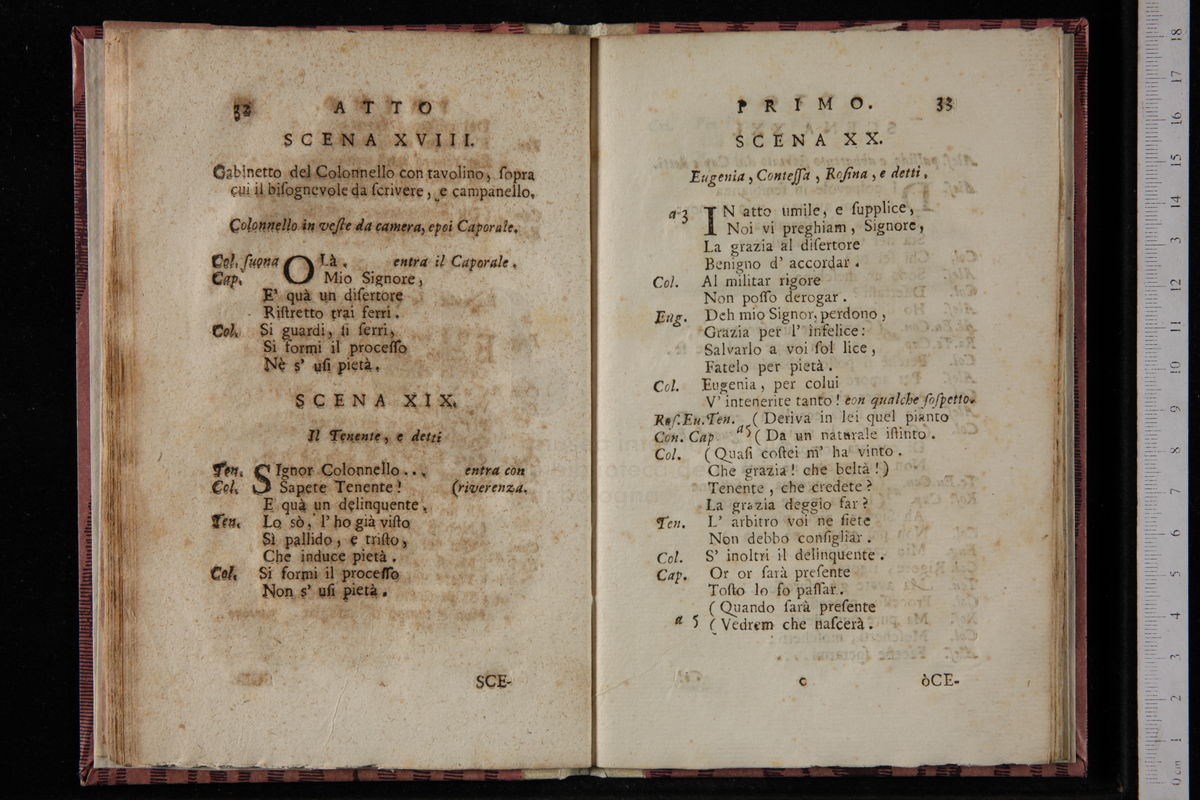 32 ATTO
SCENA XVIII.
Gabinetto del Colonnello con tavolino, ſopra
cui il biſognevole da ſcrivere, e campanello.
Colonnello in veſte da camera, e poi Caporale.
Col. ſuona OLà. entra il Caporale.
Cap. Mio Signore,
E' quà un diſertore
Riſtretto trai ferri.
Col. Si guardi, ſi ſerri,
Si formi il proceſſo
Nè s' uſi pietà.
SCENA XIX.
Il Tenente, e detti
Ten. SIgnor Colonnello... entra con
Col. Sapete Tenente! (riverenza.
E quà un delinquente.
Ten. Lo sò, l' ho già viſto
Sì pallido, e triſto,
Che induce pietà.
Col. Si formi il proceſſo
Non s' uſi pietà.
SCE-
PRIMO. 33
SCENA XX.
Eugenia, Conteſſa, Roſina, e detti.
a 3 IN atto umile, e ſupplice,
Noi vi preghiam, Signore,
La grazia al diſertore
Benigno d' accordar.
Col. Al militar rigore
Non poſſo derogar.
Eug. Deh mio Signor, perdono,
Grazia per l' infelice:
Salvarlo a voi ſol lice,
Fatelo per pietà.
Col. Eugenia, per colui
V' intenerite tanto! con qualche ſoſpetto.
Roſ. Eu. Ten. (Deriva in lei quel pianto
Con. Cap a 5 (Da un naturale iſtinto.
Col. (Quaſi coſtei m' ha vinto.
Che grazia! che beltà!)
Tenente, che credete?
La grazia deggio far?
Ten. L' arbitro voi ne ſiete
Non debbo conſigliar.
Col. S' inoltri il delinquente.
Cap. Or or ſarà preſente
Toſto lo fo paſſar.
(Quando ſarà preſente
a 5 (Vedrem che naſcerà.
c òCE-
0 cm 1 2 3 4 5 6 7 8 9 10 11 12 13 14 15 16 17 18